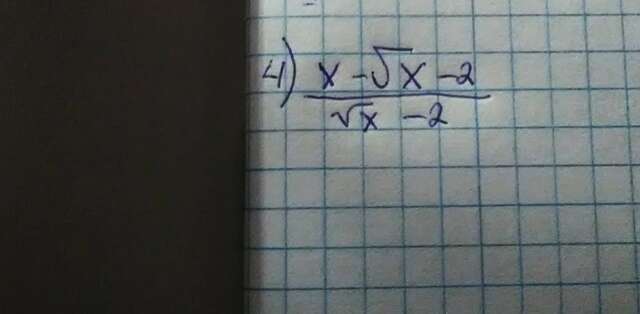 4) x - √x - 2
√x - 2